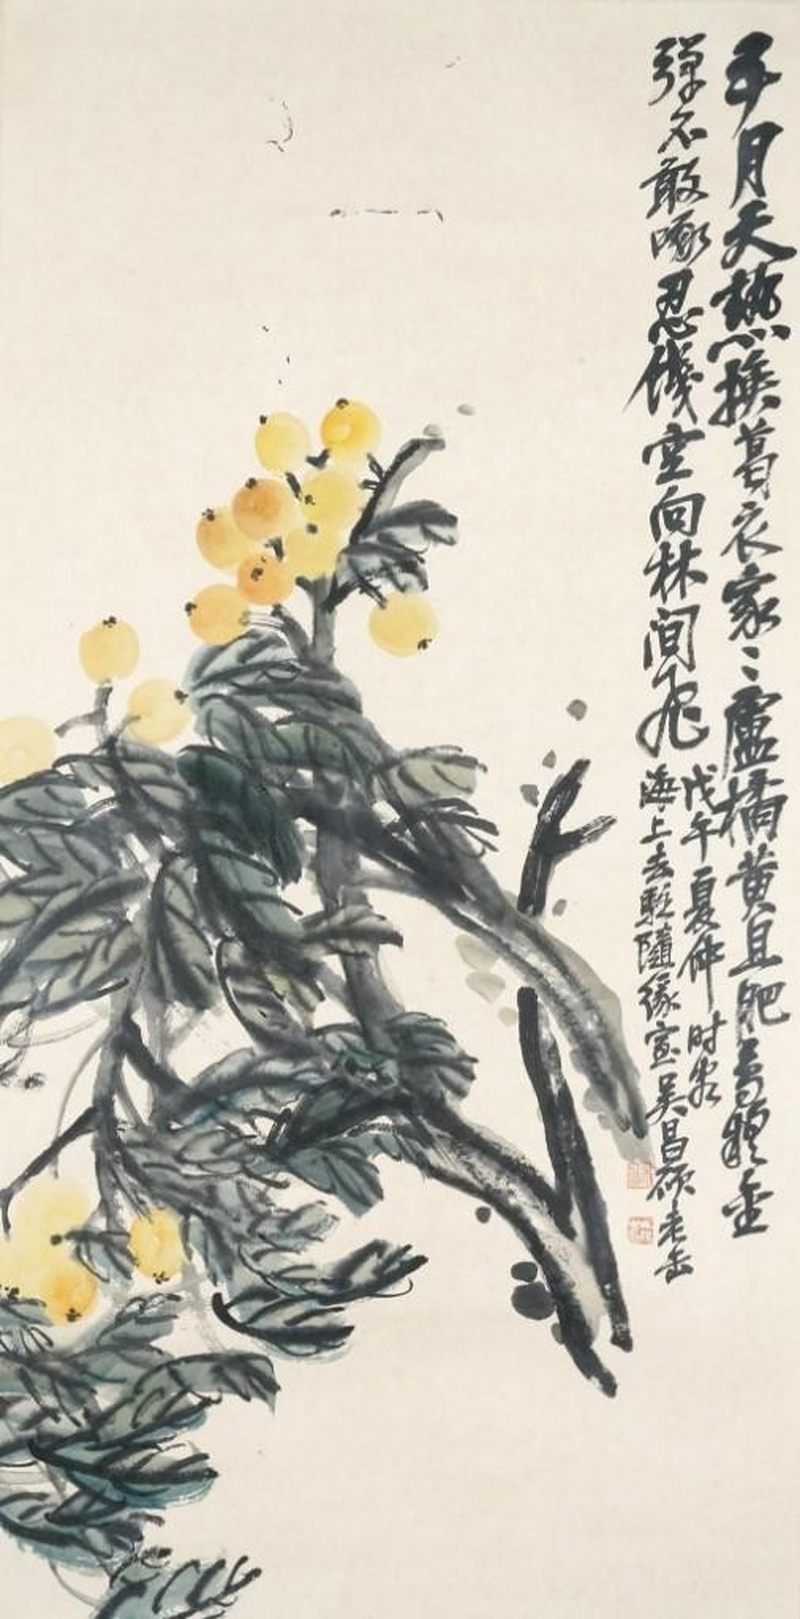 五月天熱換葛衣家〻盧橘黄且肥鳥疑金
彈不敢啄忍饑空向林間飛
戊午夏仲時客
海上去駐隨緣室吴昌碩老缶